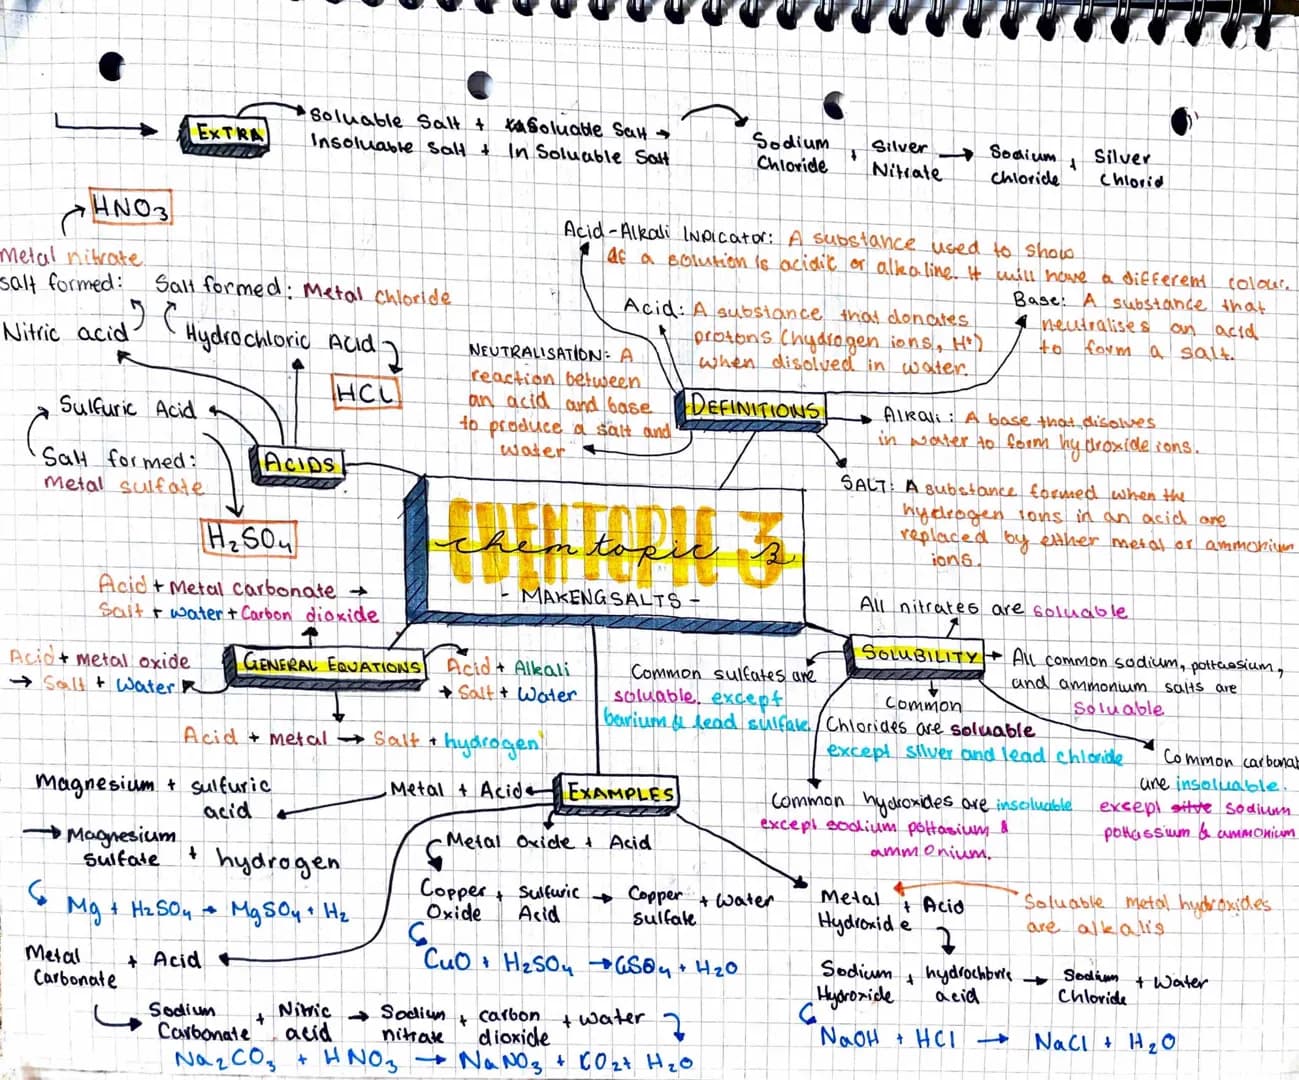 EXTRA
Soluable Salt + Soluable Salt →
Insoluable Salt + InSoluable Salt
Sodium Chloride + Silver Nitrate → Sodium Chloride + Silver Chlorid
HNO3
Metal nitrate
Salt formed:
Nitric acid
Salt formed: Metal chloride
Hydrochloric Acid
HCL
Sulfuric Acid
Salt formed:
Metal sulfate
H2SO4
ACIDS
Acid-Alkali INDICATOR: A substance used to show
if a solution is acidic or alkaline. It will have a different colour.
Acid: A substance that donates
protons (hydrogen ions, H+)
when disolved in water.
Base: A substance that
neutralises an acid
to form a salt.
NEUTRALISATION: A
reaction between
an acid and base
to produce a salt and
water
DEFINITIONS
Alkali: A base that disolves
in water to form hydroxide ions.
SALT: A substance formed when the
hydrogen ions in an acid are
replaced by either metal or ammonium
ions.
CHEM TOPIC 3
chem topic 3
- MAKENG SALTS -
Acid + Metal carbonate →
Salt + water + Carbon dioxide
GENERAL EQUATIONS
Acid + metal oxide
→ Salt + Water
Acid + Alkali
→ Salt + Water
Acid + metal → Salt + hydrogen
SOLUBILITY
All nitrates are soluable
All common sodium, pottassium,
and ammonium salts are
soluable
Common sulfates are
soluable. except
barium & lead sulfate.
Common
Chlorides are soluable
except silver and lead chloride
Common carbonat
are insoluable.
except silve sodium
pottassium & ammonium
Common hydroxides are insoluable
except sodium pottasium &
ammonium.
EXAMPLES
Metal + Acid
Magnesium + sulfuric
acid
→ Magnesium
sulfate + hydrogen
Mg + H2SO4 → MgSO4 + H2
Metal Oxide + Acid
Copper Oxide + Sulfuric Acid → Copper sulfate + Water
CuO + H2SO4 → CuSO4 + H2O
Metal Hydroxide + Acid
Soluable metal hydroxides
are alkalis
Sodium Hydroxide + hydrochloric acid → Sodium Chloride + Water
NaOH + HCl → NaCl + H2O
Metal Carbonate + Acid
Sodium Carbonate + Nitric acid → Sodium nitrate + carbon dioxide + water
Na2CO3 + HNO3 → NaNO3 + CO2 + H2O